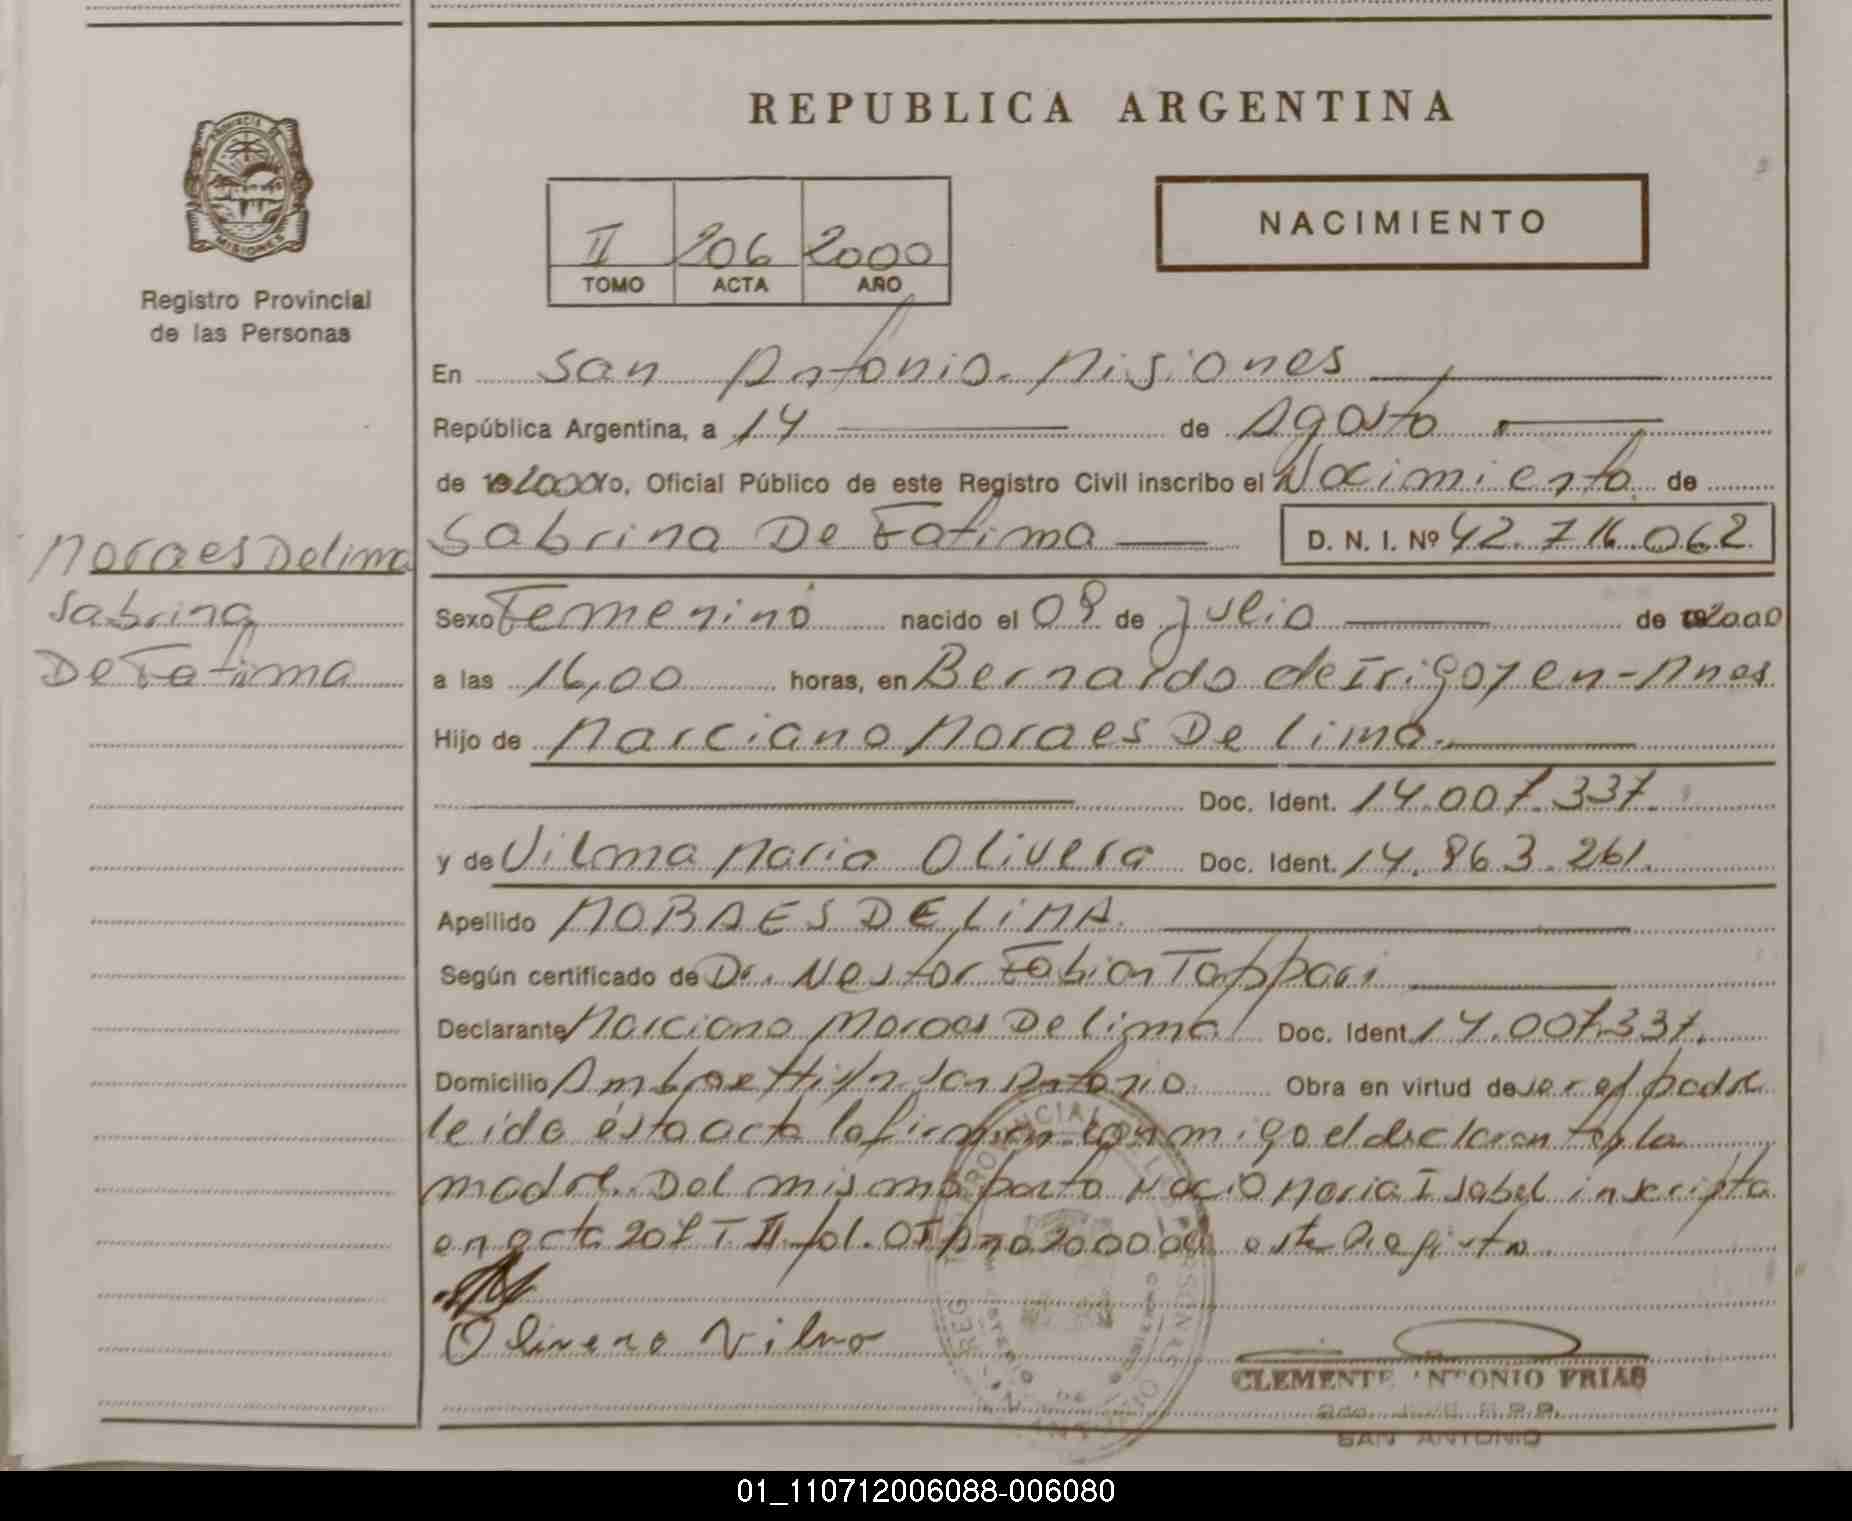 REPUBLICA ARGENTINA
PROVINCIA DE
MISIONES
Registro Provincial
de las Personas
II 206 2000
TOMO ACTA AÑO
NACIMIENTO
En San Antonio. Misiones
República Argentina, a 14 de Agosto
de 2000 Yo, Oficial Público de este Registro Civil inscribo el Nacimiento de
Sabrina De Fatima D. N. I. Nº 42.716.062
Moraes De lima
Sabrina
De Fatima
Sexo Femenino nacido el 09 de Julio de 2000
a las 16,00 horas, en Bernardo de Irigoyen - Mnes
Hijo de Marciano Moraes De lima.
Doc. Ident. 14.007.337.
y de Vilma Maria Olivera Doc. Ident. 14.863.261.
Apellido MORAES DE LIMA.
Según certificado de Dr. Nestor Fabian Tappari
Declarante Marciano Moraes De lima Doc. Ident. 14.007.337.
Domicilio Ambaetti s/n San Antonio Obra en virtud de ser el padre
leido ésta acta la firman conmigo el declarante y la
madre. Del mismo parto Nacio Maria Isabel inscripta
en acta T II fol. Año 2000 de este Registro.
Olivera Vilma
CLEMENTE ANTONIO FRIAS
SAN ANTONIO
01_110712006088-006080